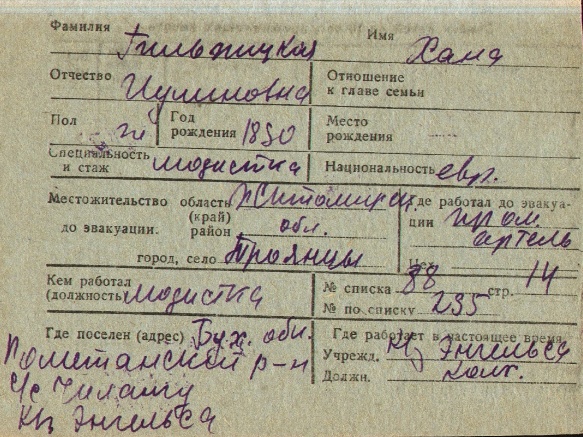 Фамилия Гильжицкая Имя Хана
Отчество Иулиновна Отношение к главе семьи
Пол ж Год рождения 1890 Место рождения
Специальность и стаж модистка Национальность евр.
Местожительство до эвакуации. область (край) Житомирск. обл.
район
город, село Троянцы
Где работал до эвакуации пром. артель
Цех
Кем работал (должность) модистка
№ списка 88 стр. 14
№ по списку 235
Где поселен (адрес) Бух. обл.
р-н
с/с
К/з Энгельса
Где работает в настоящее время
Учрежд. К/з Энгельса
Должн. колх.